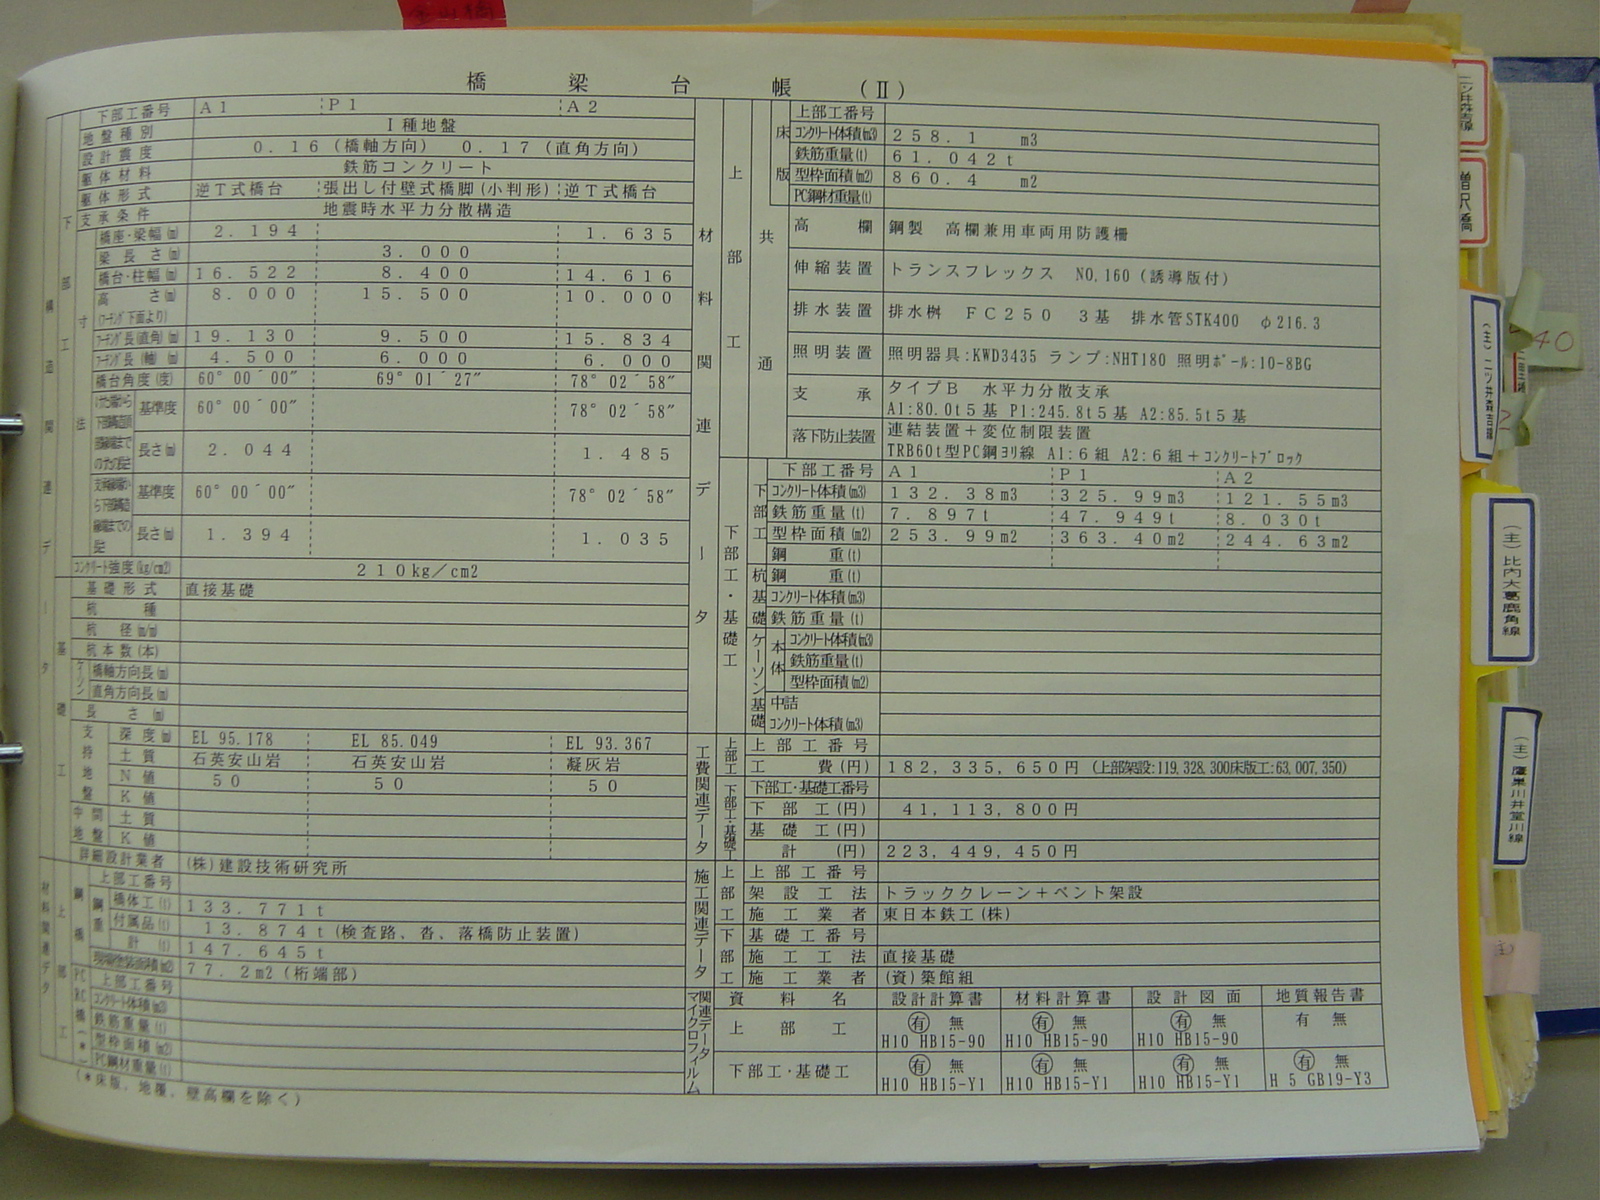 橋梁台帳(Ⅱ)
下部工番号 A1 P1 A2
地盤種別 Ⅰ種地盤
設計震度 0.16(橋軸方向) 0.17(直角方向)
躯体材料 鉄筋コンクリート
躯体形式 逆T式橋台 張出し付壁式橋脚(小判形) 逆T式橋台
支承条件 地震時水平力分散構造
橋座・梁幅(m) 2.194 1.635
梁長さ(m) 3.000
橋台・柱幅(m) 16.522 8.400 14.616
高さ(m) 8.000 15.500 10.000
(フーチング下面より)
フーチング長(直角)(m) 19.130 9.500 15.834
フーチング長(軸)(m) 4.500 6.000 6.000
橋台角度(度) 60°00´00″ 69°01´27″ 78°02´58″
基準度 60°00´00″ 78°02´58″
長さ(m) 2.044 1.485
基準度 60°00´00″ 78°02´58″
長さ(m) 1.394 1.035
コンクリート強度(kg/cm2) 210kg/cm2
構造関連データ
下部工
寸法
基礎工
基礎形式 直接基礎
杭種
杭径(m/m)
杭本数(本)
ケーソン
橋軸方向長(m)
直角方向長(m)
長さ(m)
支持地盤
深度(m) EL 95.178 EL 85.049 EL 93.367
土質 石英安山岩 石英安山岩 凝灰岩
N値 50 50 50
K値
中間地盤
土質
K値
詳細設計業者 (株)建設技術研究所
材料関連データ
上部工
鋼橋
上部工番号
鋼重
橋体工(t) 133.771t
付属品(t) 13.874t(検査路、沓、落橋防止装置)
計(t) 147.645t
77.2m2(桁端部)
PC RC橋(*)
上部工番号
コンクリート体積(m3)
鉄筋重量(t)
型枠面積(m2)
PC鋼材重量(t)
(*床版，地覆，壁高欄を除く)
材料関連データ
上部工
床版
上部工番号
コンクリート体積(m3) 258.1 m3
鉄筋重量(t) 61.042t
型枠面積(m2) 860.4 m2
PC鋼材重量(t)
共通
高欄 鋼製 高欄兼用車両用防護柵
伸縮装置 トランスフレックス NO,160(誘導版付)
排水装置 排水桝 FC250 3基 排水管STK400 φ216.3
照明装置 照明器具:KWD3435 ランプ:NHT180 照明ポール:10-8BG
支承 タイプB 水平力分散支承
A1:80.0t5基 P1:245.8t5基 A2:85.5t5基
落下防止装置 連結装置+変位制限装置
TRB60t型PC鋼ヨリ線 A1:6組 A2:6組+コンクリートブロック
下部工・基礎工
下部工
下部工番号 A1 P1 A2
コンクリート体積(m3) 132.38m3 325.99m3 121.55m3
鉄筋重量(t) 7.897t 47.949t 8.030t
型枠面積(m2) 253.99m2 363.40m2 244.63m2
鋼重(t)
杭基礎
鋼重(t)
コンクリート体積(m3)
鉄筋重量(t)
ケーソン基礎
本体
コンクリート体積(m3)
鉄筋重量(t)
型枠面積(m2)
中詰
コンクリート体積(m3)
工費関連データ
上部工
上部工番号
工費(円) 182,335,650円 (上部架設:119,328,300床版工:63,007,350)
下部工・基礎工
下部工・基礎工番号
下部工(円) 41,113,800円
基礎工(円)
計(円) 223,449,450円
施工関連データ
上部工
上部工番号
架設工法 トラッククレーン+ベント架設
施工業者 東日本鉄工(株)
下部工
基礎工番号
施工工法 直接基礎
施工業者 (資)築館組
関連データマイクロフィルム
資料名 設計計算書 材料計算書 設計図面 地質報告書
上部工 有 無 有 無 有 無 有 無
H10 HB15-90 H10 HB15-90 H10 HB15-90
下部工・基礎工 有 無 有 無 有 無 有 無
H10 HB15-Y1 H10 HB15-Y1 H10 HB15-Y1 H 5 GB19-Y3
二ツ井森吉線
増沢橋
(主)二ツ井森吉線
40
(主)比内大葛鹿角線
(主)鷹巣川井堂川線